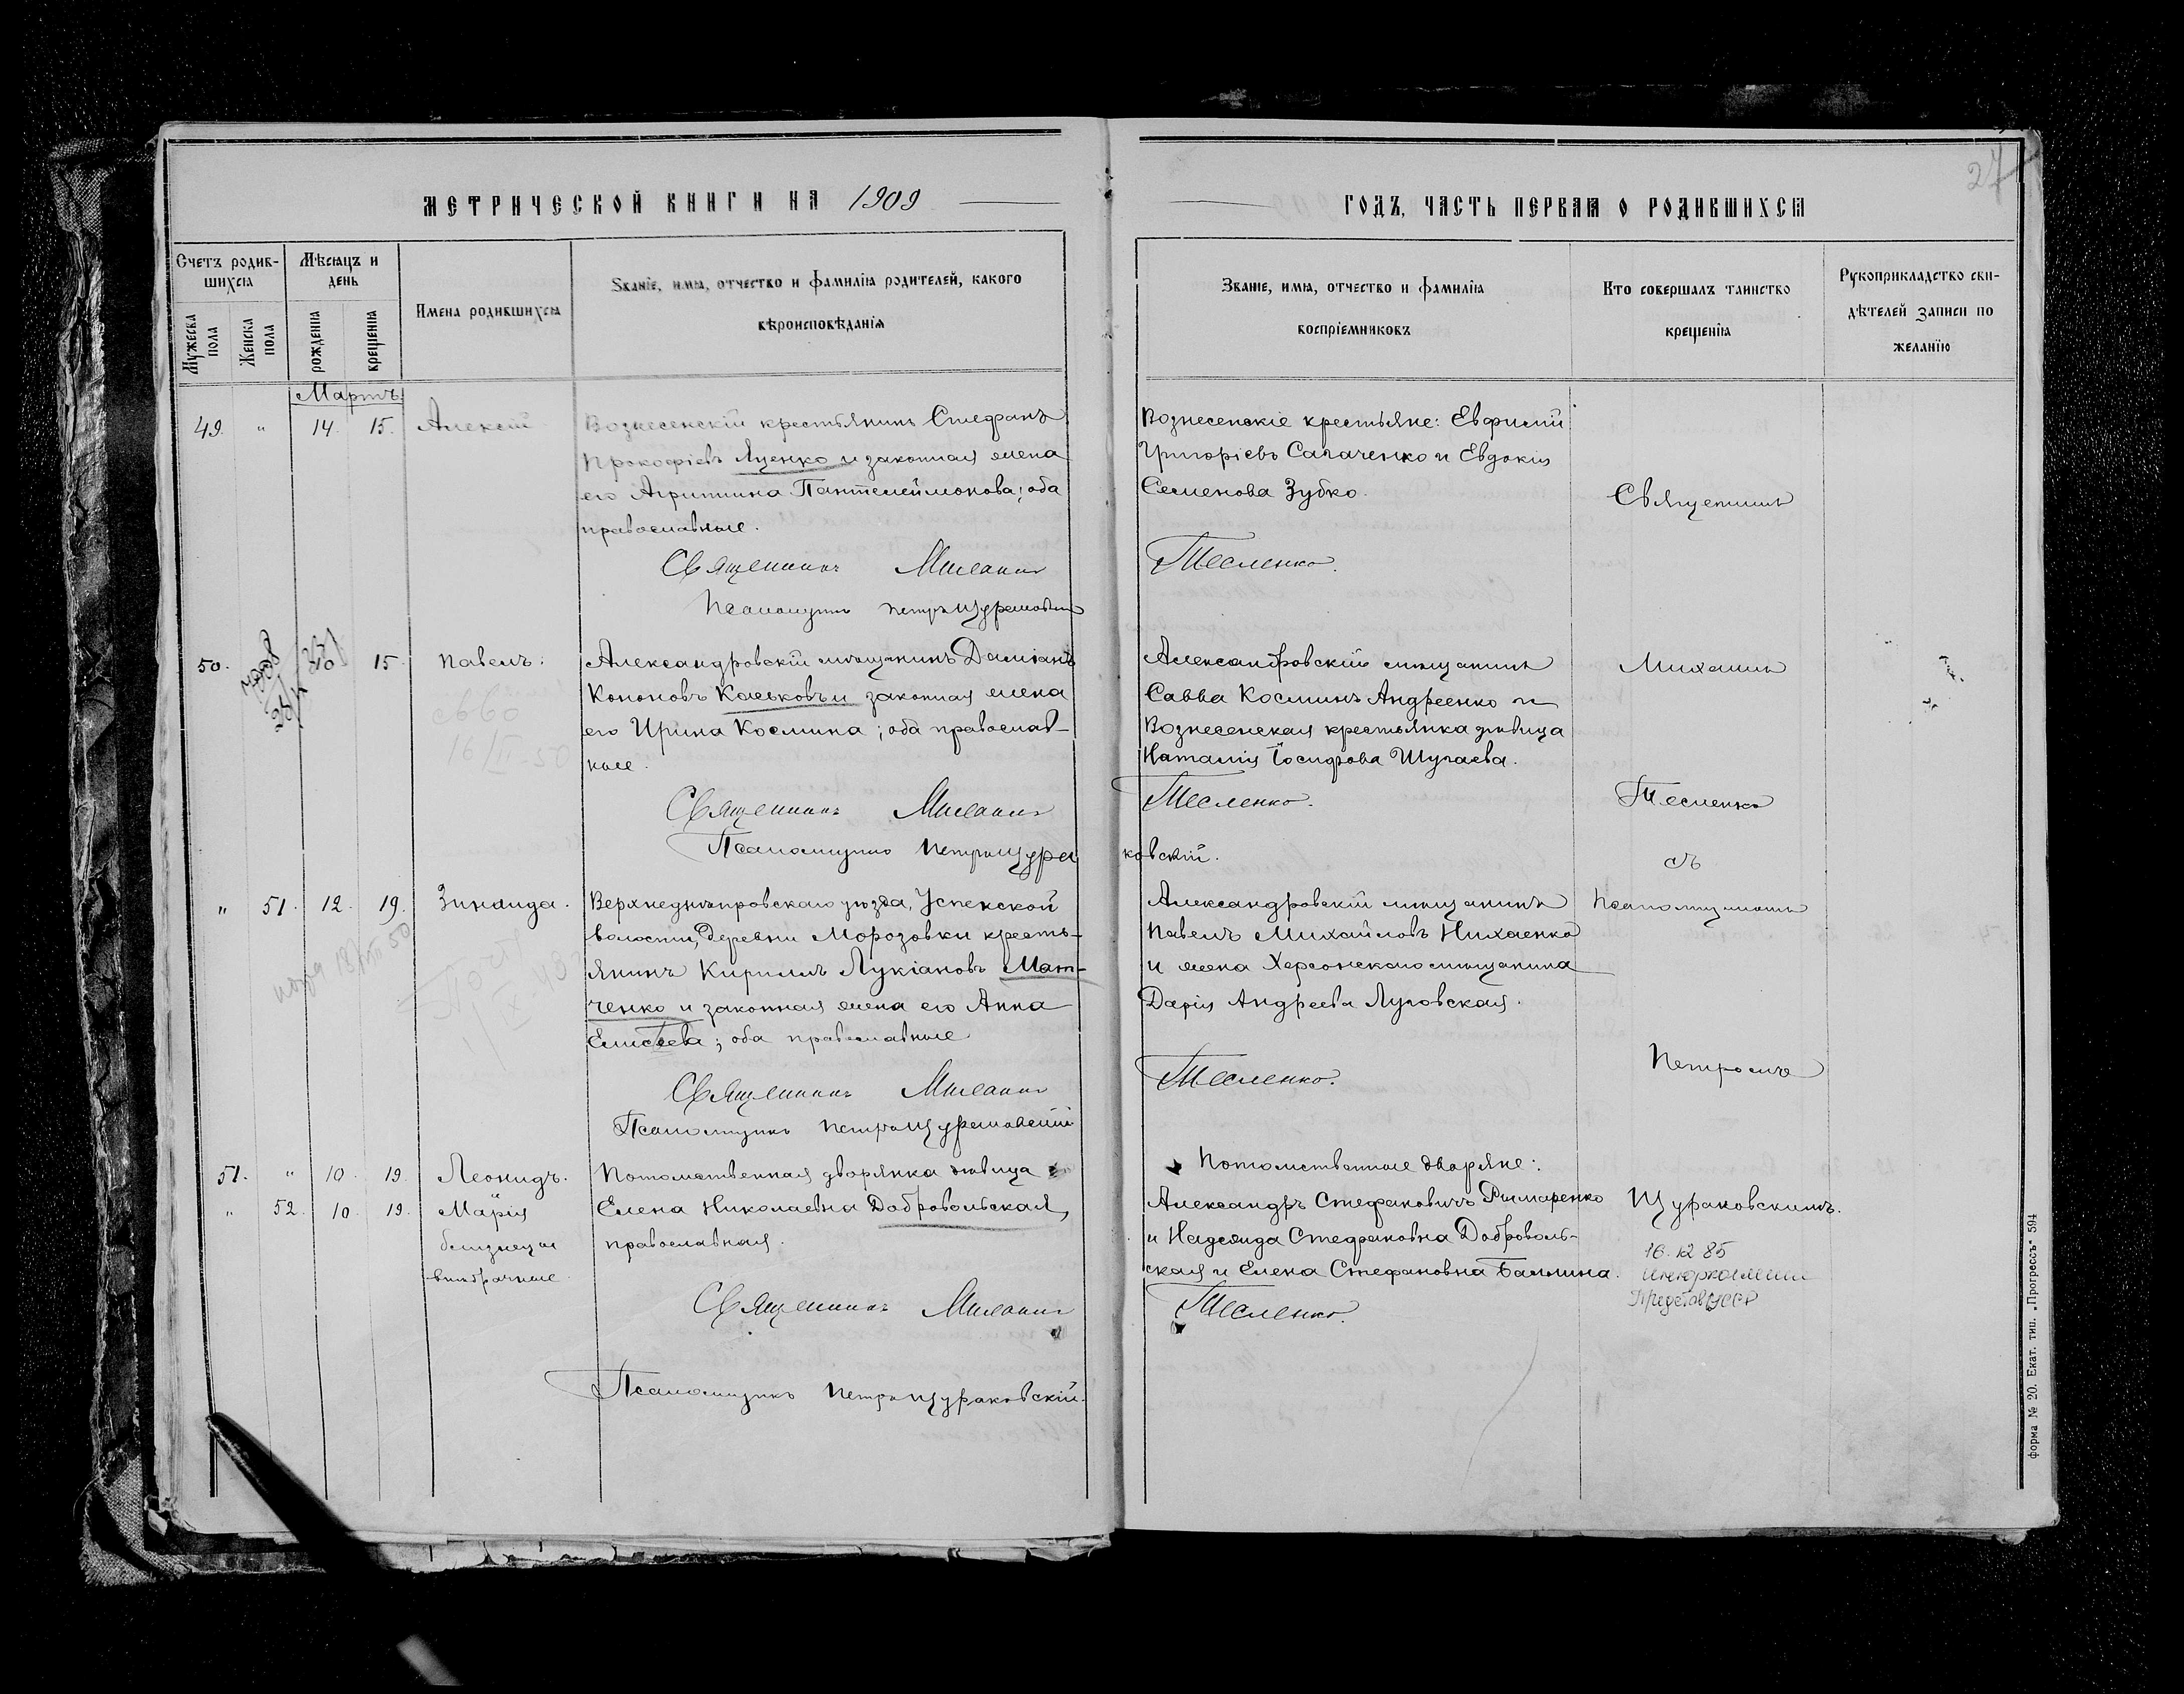 27
МЕТРИЧЕСКОЙ КНИГИ НА 1909
ГОДЪ, ЧАСТЬ ПЕРВАЯ О РОДИВШИХСЯ
Счетъ родив-
шихся
Мужеска пола
Женска пола
Мѣсяцъ и
день
рожденія
крещенія
Имена родившихся
Званіе, имя, отчество и фамилія родителей, какого
вѣроисповѣданія
Званіе, имя, отчество и фамилія
воспріемниковъ
Кто совершалъ таинство
крещенія
Рукоприкладство сви-
дѣтелей записи по
желанію
Мартъ
49. " 14. 15. Алексій
Вознесенскій крестьянинъ Стефанъ
Прокофіевъ Луценко и законная жена
его Агрипина Пантелеймонова; оба
православные.
Священникъ Михаилъ Тесленко.
Псаломщикъ Петръ Щураковскій
Вознесенскіе крестьяне: Евфимій
Григорієвъ Сагаченко и Евдокія
Семенова Зубко.
50. 10 15 Павелъ.
Александровскій мѣщанинъ Даміанъ
Кононовъ Коньковъ и законная жена
его Ирина Космина; оба православ-
ные.
Священникъ Михаилъ Тесленко.
Псаломщикъ Петръ Щураковскій.
Александровскій мѣщанинъ
Савва Косминъ Андреенко и
Вознесенская крестьянка дѣвица
Наталія Іосифова Шугаева.
16/II-50
" 51. 12. 19. Зинаида.
Верхнеднѣпровскаго уѣзда, Успенской
волости, деревни Морозовки кресть-
янинъ Кириллъ Лукіановъ Мат-
ченко и законная жена его Анна
Елисеева; оба православные
Священникъ Михаилъ Тесленко.
Псаломщикъ Петръ Щураковскій
Александровскій мѣщанинъ
Павелъ Михайловъ Нихаенко
и жена Херсонскаго мѣщанина
Дарія Андреева Луговская.
51. " 10. 19. Леонидъ.
" 52. 10. 19. Марія
близнецы
внѣбрачные.
Потомственная дворянка дѣвица
Елена Николаевна Добровольская,
православная.
Священникъ Михаилъ Тесленко.
Псаломщикъ Петръ Щураковскій.
Потомственные дворяне:
Александръ Стефановичъ Рымаренко
и Надежда Стефановна Доброволь-
ская и Елена Стефановна Бальина.
Священникъ
Михаилъ
Тесленко
съ
Псаломщикомъ
Петромъ
Щураковскимъ.
16.12 85
Инюрколлегия
Предстов УССР
форма № 20. Екат. тип. „Прогрессъ" 594